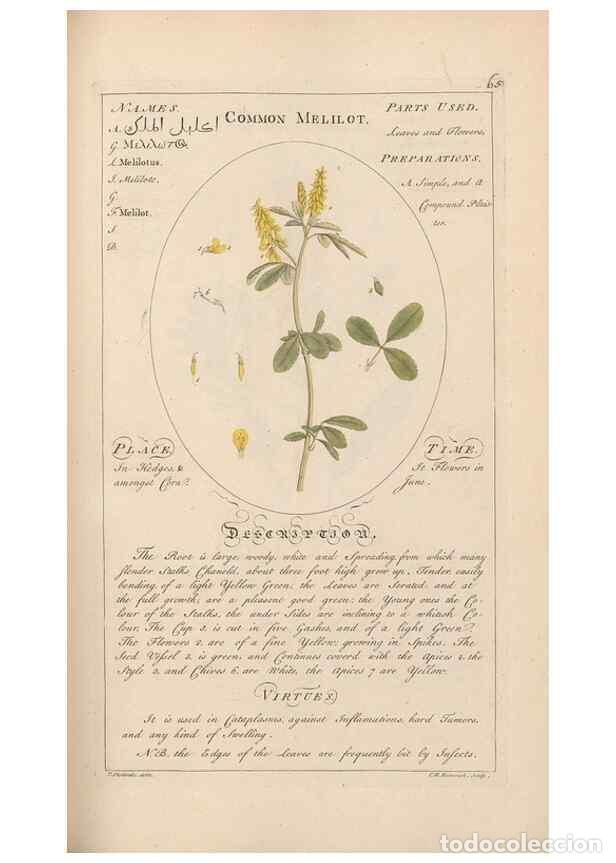 65
NAMES.
A. اكليل الملك
G. Μελλωτ
L. Melilotus.
I. Meliloto.
G.
F. Melilot.
S.
B.
COMMON MELILOT.
PARTS USED.
Leaves and Flowers,
PREPARATIONS.
A Simple, and A
Compound Plais-
ter.
1
6
PLACE.
In Hedges, &
amongst Corn.
TIME.
It Flowers in
June.
DESCRIPTION.
The Root is large, woody, white and Spreading, from which many
slender Stalks Chaneld, about three foot high grow up, Tender, easily
bending, of a light Yellow Green; the Leaves are Serated, and at
the full growth, are a pleasent good green; the Young ones the Co-
lour of the Stalks, the under Sides are inclining to a whitish Co-
lour. The Cup 3. is cut in five Gashes, and of a light Green.
The Flowers 2. are of a fine Yellow, growing in Spikes. The
Seed Vessel 2. is green, and Continues coverd with the Apices 2. the
Style 2, and Chives 6. are White, the Apices 7 are Yellow.
VIRTUES.
It is used in Cataplasms, against Inflamations, hard Tumors,
and any kind of Swelling.
N.B. the Edges of the Leaves are frequently bit by Insects.
T. Sheldrake. delin.
C.H. Hemerich, Sculp.
todocoleccion